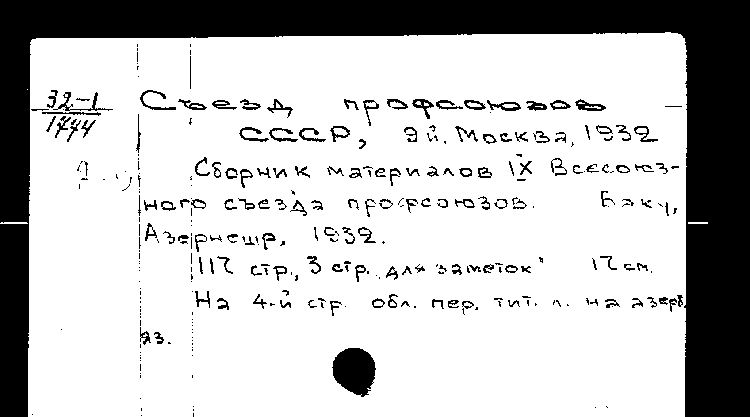 32-1
1744
Съезд профсоюзов
СССР, 9й. Москва, 1932
Сборник материалов IX Всесоюз-
ного съезда профсоюзов. Баку,
Азернешр, 1932.
117 стр., 3 стр. "для заметок" 17 см.
На 4-й стр. обл. пер. тит. л. на азерб.
яз.